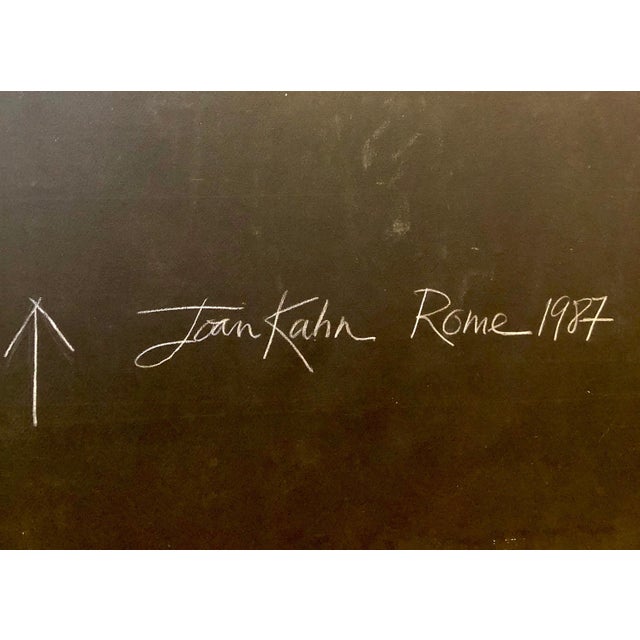 Joan Kahn Rome 1987